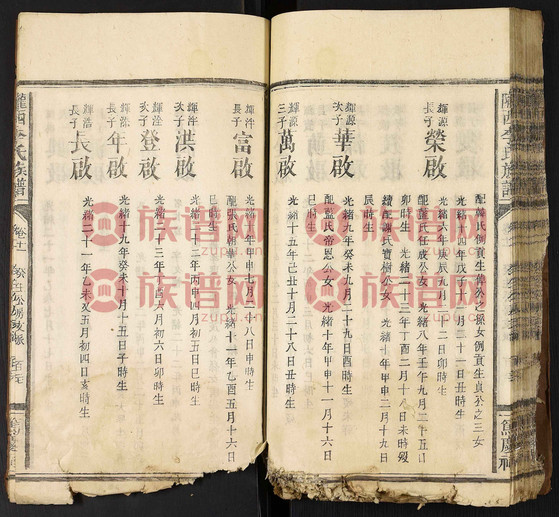 隴西李氏族譜
餘慶祠
配韓氏例貢生萬公之孫女例貢生貞公之三女
輝源長子
榮啟
光緒六年庚辰九月二十二日卯時生
配藍氏任成公女光緒八年壬午九月二十五日
卯時生 光緒二十三年丁酉二月十八日未時歿
續配謝氏寶樹公女光緒十年甲申二月十九日
辰時生
輝源次子
華啟
光緒九年癸未九月二十九日酉時生
配藍氏帝恩公女光緒十年甲申十一月十六日
巳時生
輝源三子
萬啟
光緒十五年己丑十月二十八日丑時生
輝泮長子
富啟
光緒十年甲申七月二十八日申時生
配張氏朝華公女光緒十一年乙酉五月十六日
巳時生
輝泮次子
洪啟
光緒二十二年丙申八月初五日巳時生
次子
登啟
光緒二十三年丁酉六月初六日卯時生
長子
年啟
光緒十九年癸巳十月十五日子時生
長子
長啟
光緒二十一年乙未又五月初四日亥時生
隴西李氏族譜
卷十一
餘慶祠
族谱网
zupu.cn